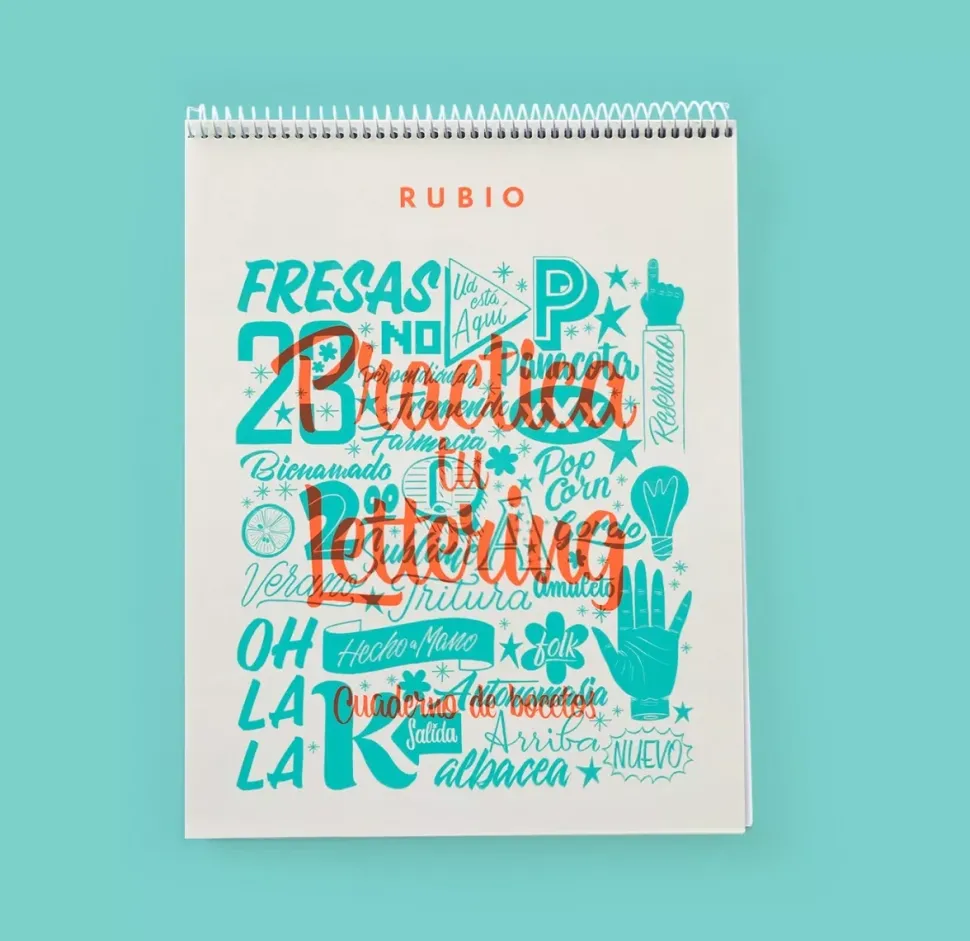 RUBIO
FRESAS
Ud
está
Aquí
P
28
NO
Practica
Panacota
Reservado
Perpendicular
Tremendo
XXX
Farmacia
tu
Bienamado
Pop
Corn
Lettering
Gordo
Sublime
Verano
Tritura
Amuleto
OH
LA
LA
Hecho a Mano
folk
Cuaderno de bocetos
K
Salida
Arriba
NUEVO
albacea